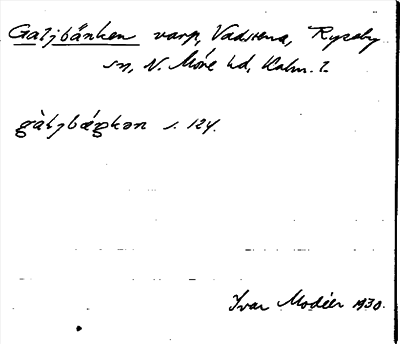 Galjbänken varp, Vadstena, Ryssby
sn, N. Möre hd, Kalm. l.
gàljbæŋkən s. 124.
Ivar Modéer 1930.